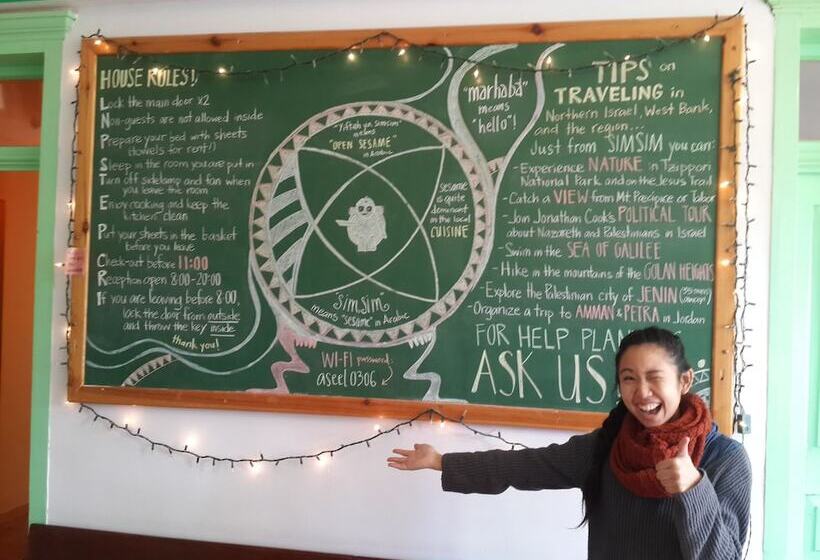 HOUSE RULES!
Lock the main door x2
Non-guests are not allowed inside
Prepare your bed with sheets
(towels for rent!)
Sleep in the room you are put in
Turn off sidelamp and fan when
you leave the room
Enjoy cooking and keep the
kitchen clean
Put your sheets in the basket
before you leave
Check-out before 11:00
Reception open 8:00-20:00
If you are leaving before 8:00,
lock the door from outside
and throw the key inside
thank you!
"Yiftah ya simsim"
means
"OPEN SESAME"
in Arabic
sesame
is quite
dominant
in the local
CUISINE
simsim
means "sesame" in Arabic
WI-FI password:
aseel0306
"marhaba"
means
"hello"!
TIPS on
TRAVELING in
Northern Israel, West Bank,
and the region...
Just from SIMSIM you can:
-Experience NATURE in Tzippori
National Park and on the Jesus Trail
-Catch a VIEW from Mt Precipice or Tabor
-Join Jonathan Cook's POLITICAL TOUR
about Nazareth and Palestinians in Israel
-Swim in the SEA OF GALILEE
-Hike in the mountains of the GOLAN HEIGHTS
-Explore the Palestinian city of JENIN
-Organize a trip to AMMAN & PETRA in Jordan
FOR HELP PLAN
ASK US